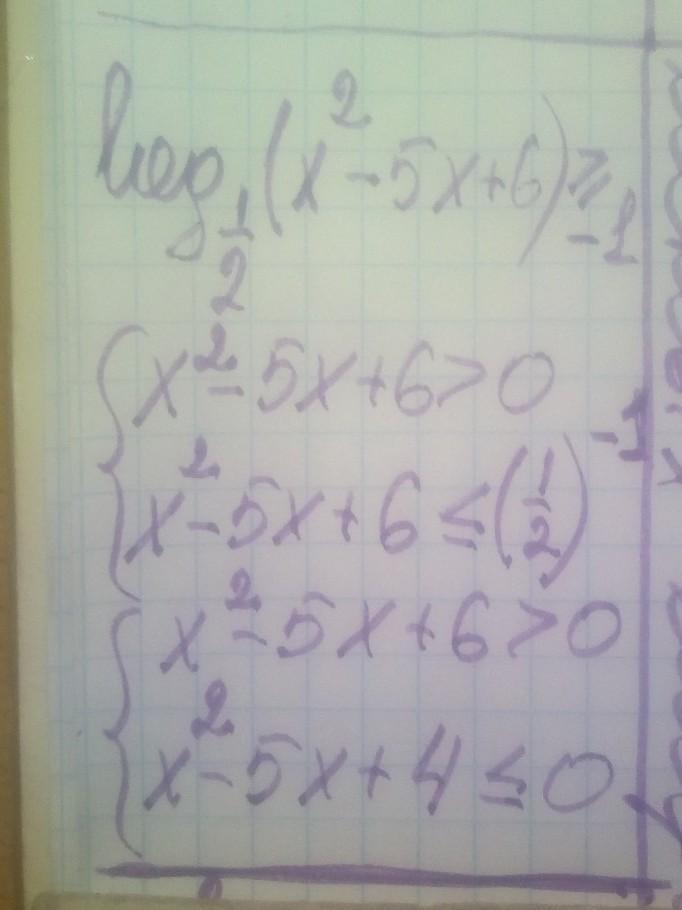 log_{1/2}(x² - 5x + 6) ≥ -1
{ x² - 5x + 6 > 0
x² - 5x + 6 ≤ (1/2)^{-1}
{ x² - 5x + 6 > 0
x² - 5x + 4 ≤ 0